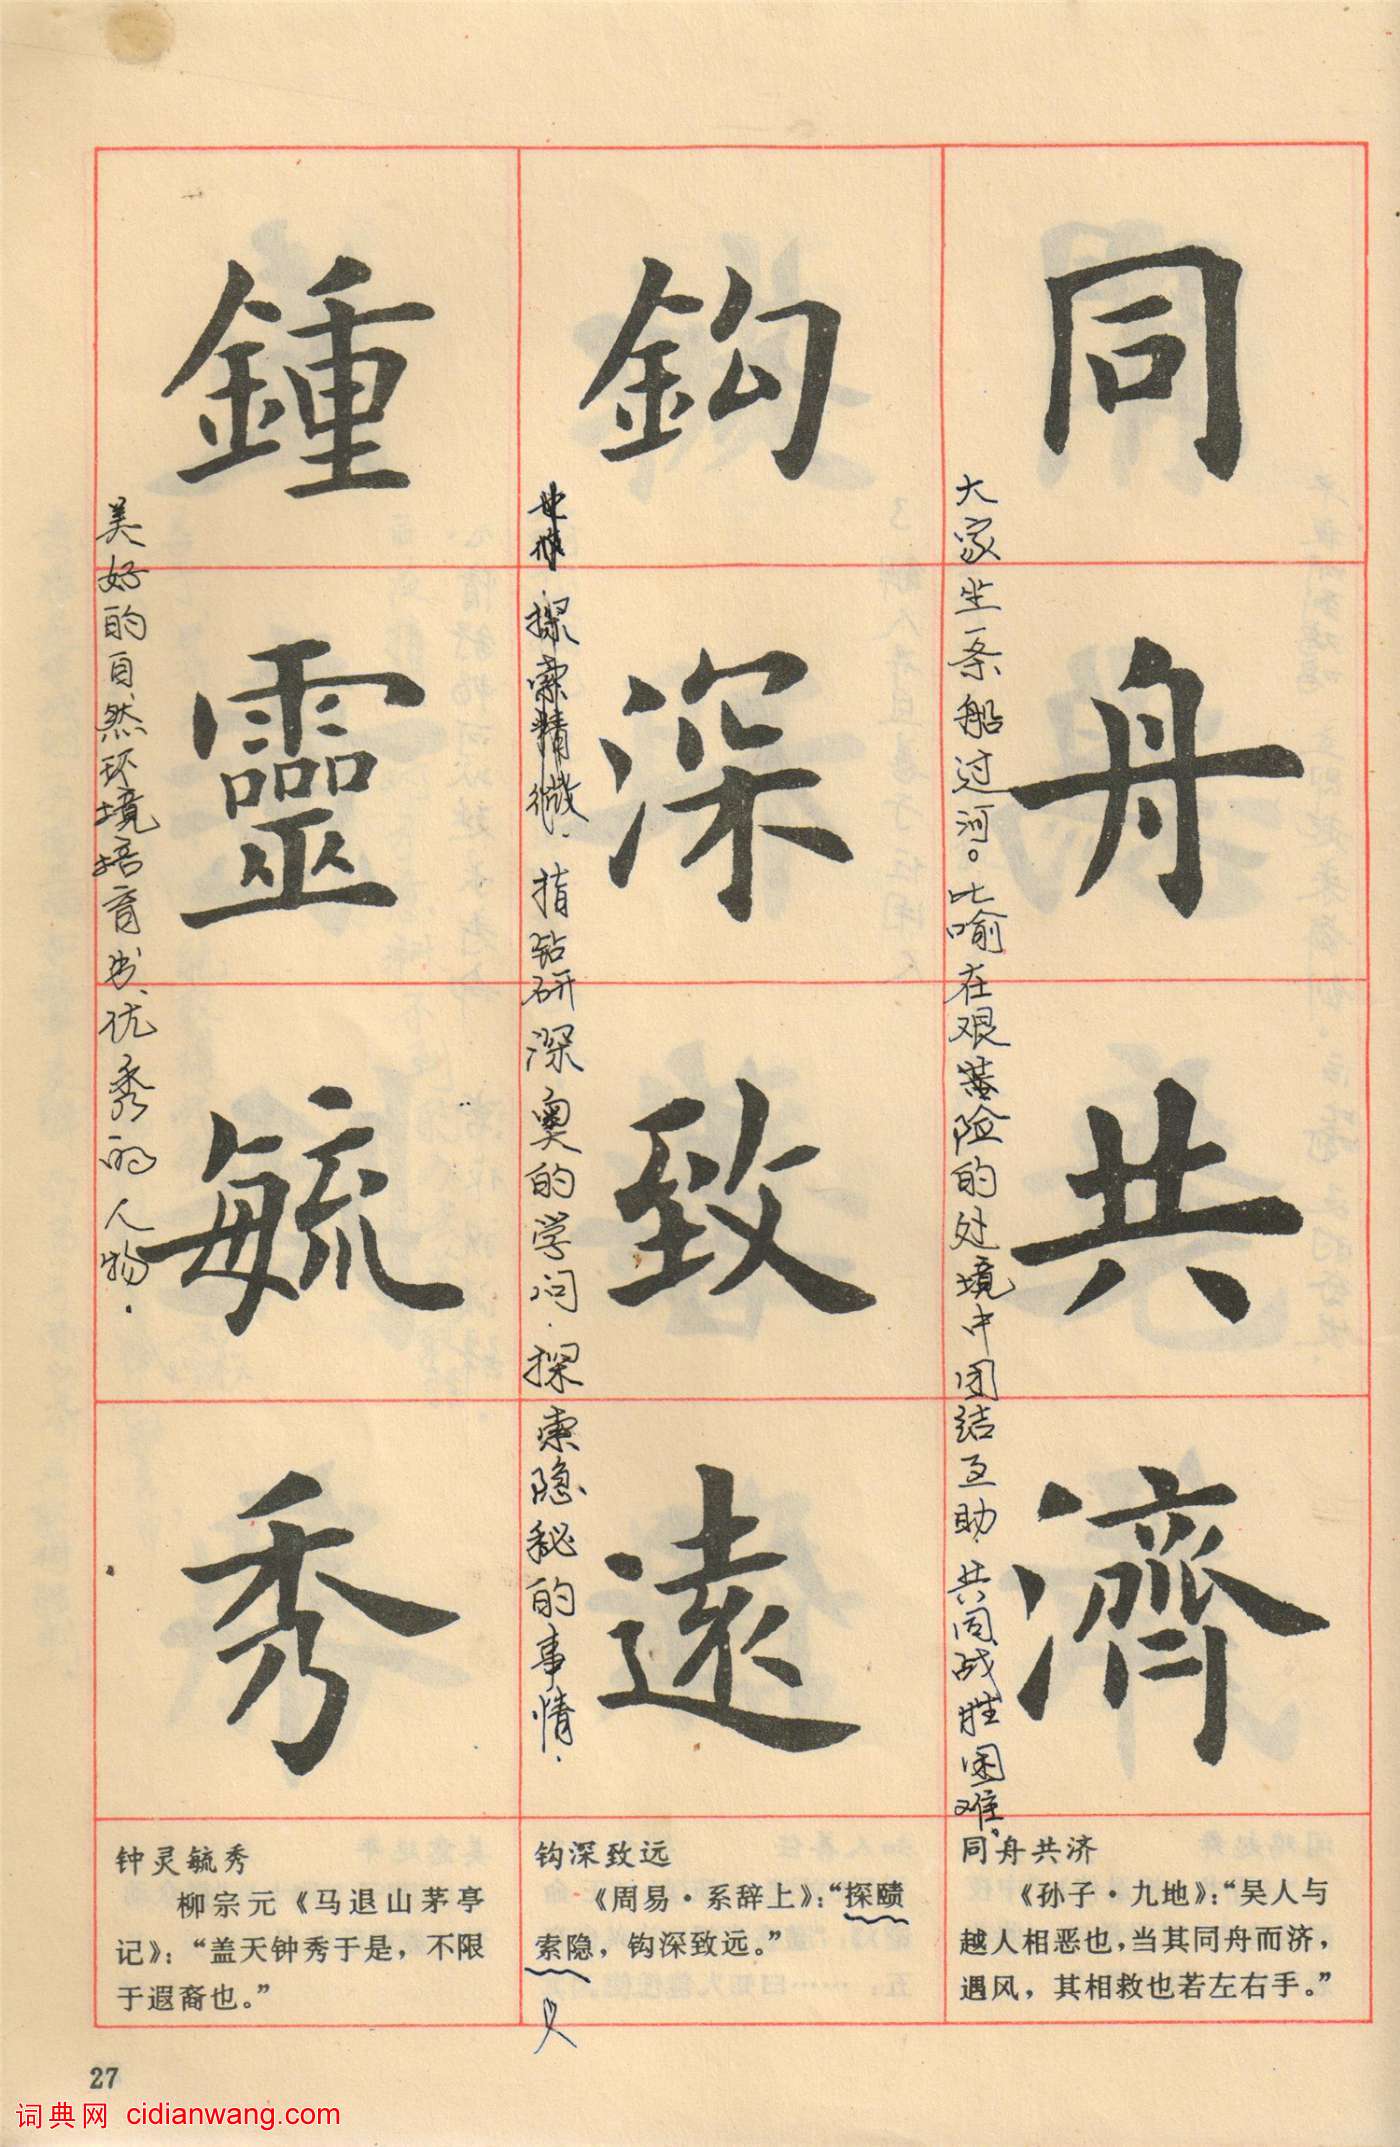 同舟共濟
大家坐一条船过河。比喻在艰险的处境中团结互助,共同战胜困难。
鈎深致遠
探索精微.指钻研深奥的学问.探索隐秘的事情.
鍾靈毓秀
美好的自然环境培育出优秀的人物.
同舟共济
《孙子·九地》:“吴人与
越人相恶也,当其同舟而济,
遇风,其相救也若左右手。”
钩深致远
《周易·系辞上》:“探赜
索隐,钩深致远。”
钟灵毓秀
柳宗元《马退山茅亭
记》:“盖天钟秀于是,不限
于遐裔也。”
27
词典网 cidianwang.com